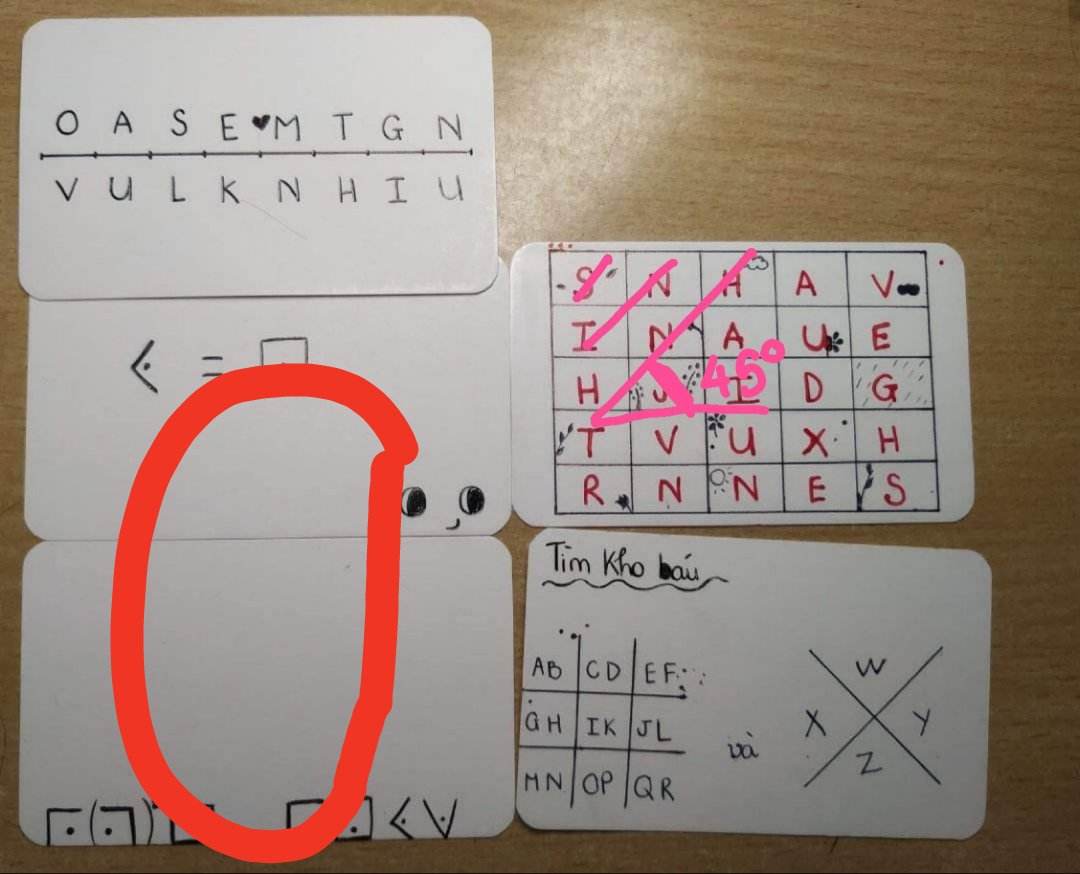 O A S E ♥ M T G N
V U L K N H I U
=
S N H A V
I N A U E
H J I D G
T V U X H
R N N E S
45°
Tìm kho báu
AB CD EF
GH IK JL
MN OP QR
và
W
X Y
Z